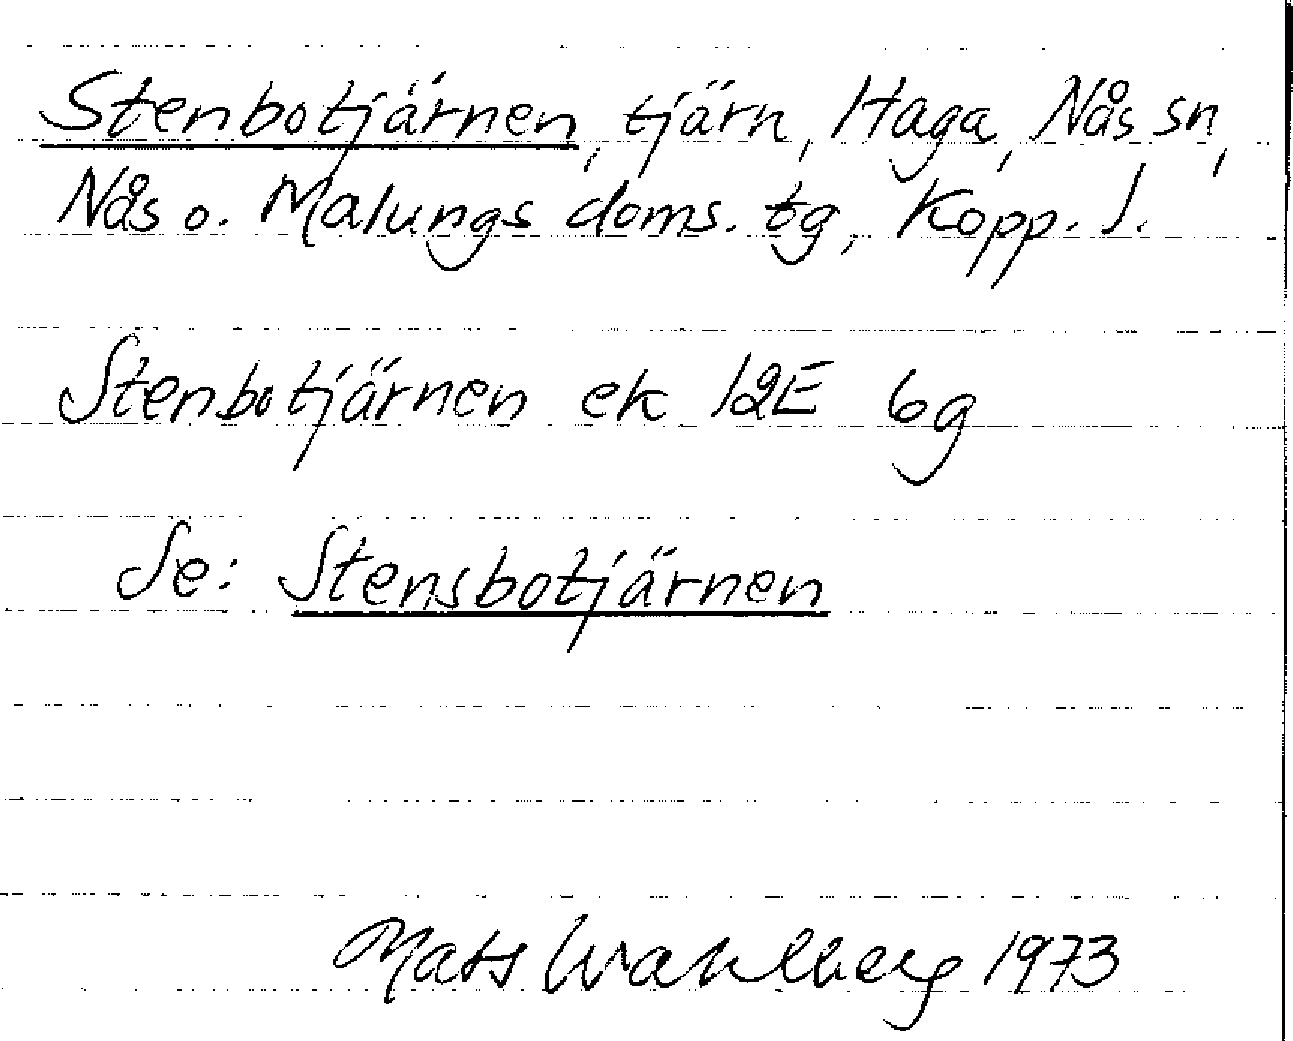 Stenbotjärnen, tjärn, Haga, Nås sn,
Nås o. Malungs doms. tg, Kopp. l.
Stenbotjärnen ek 12E 6g
Se: Stensbotjärnen
Mats Wahlberg 1973